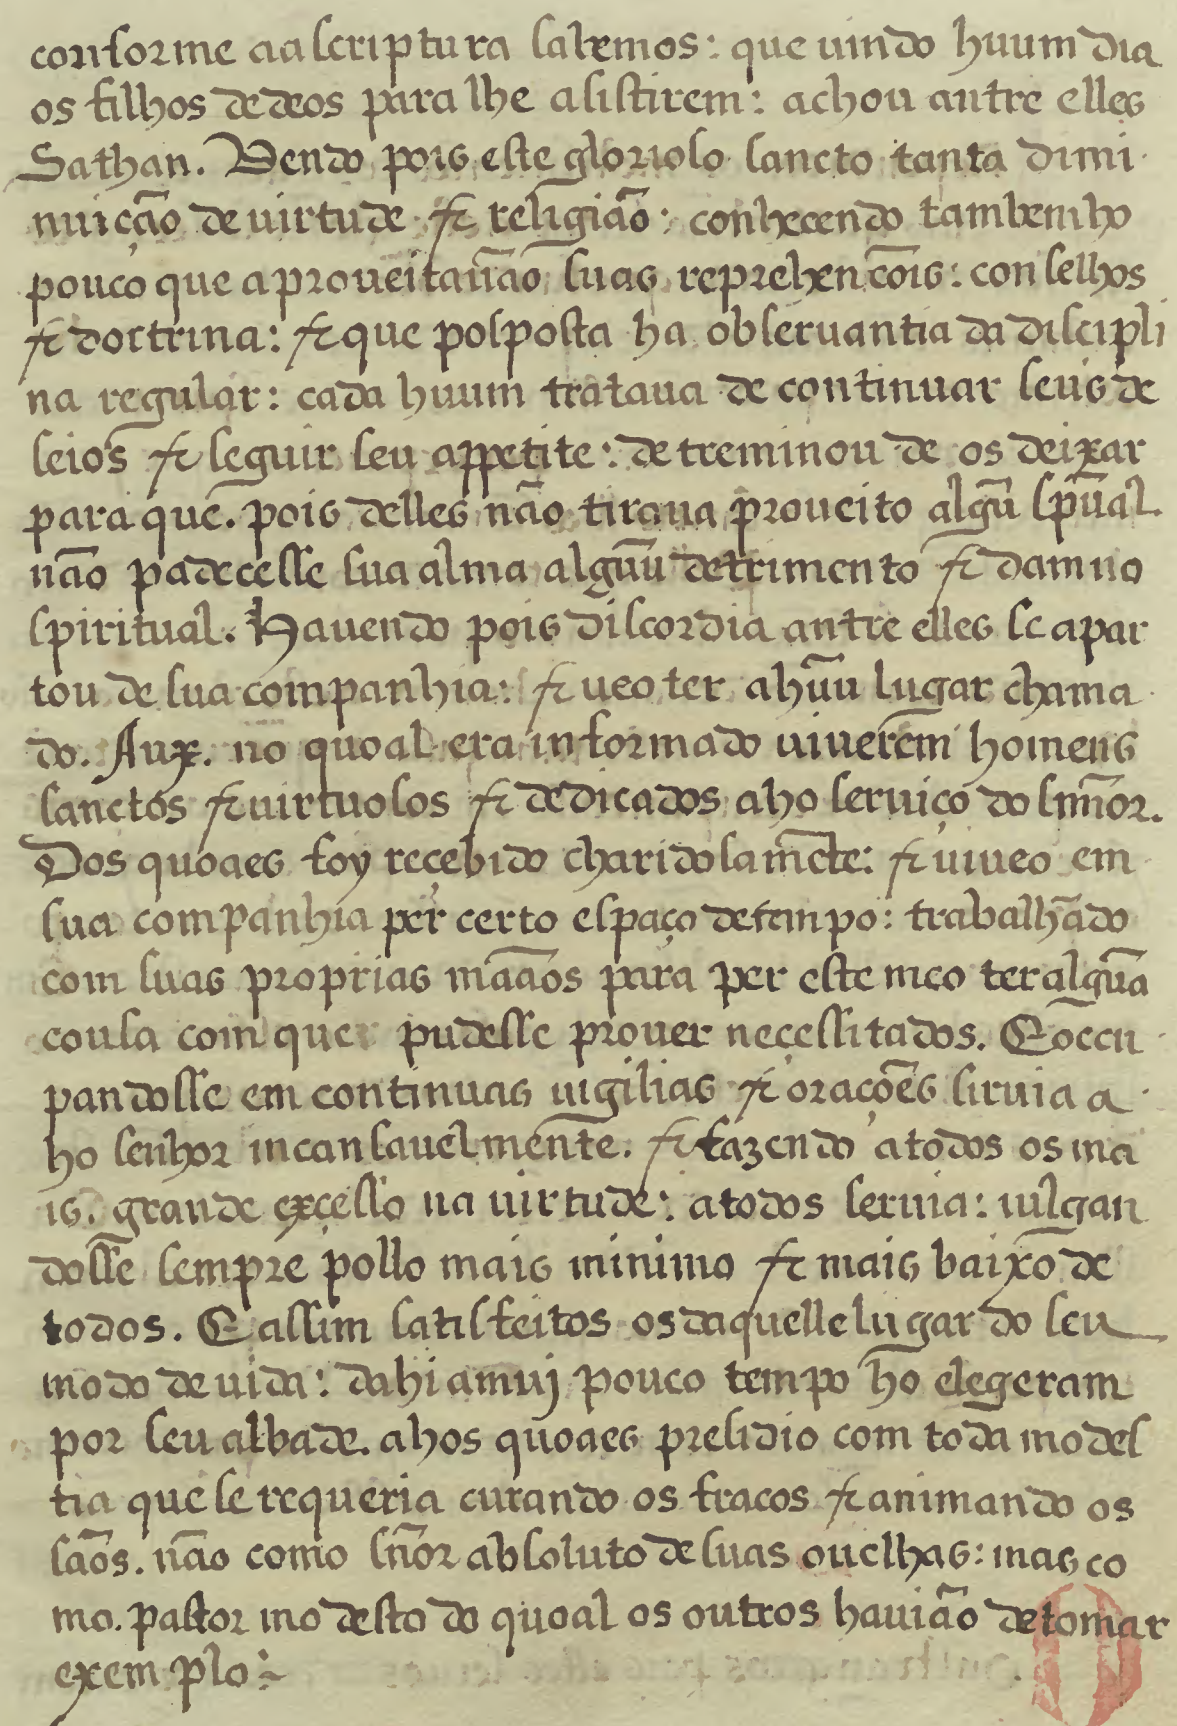 conforme aa scriptura sabemos: que uindo huum dia
os filhos de deos para lhe assistirem: achou antre elles
Sathan. Vendo pois este glorioso sancto tanta dimi
nuição de uirtude & religião: conhecendo tambem ho
pouco que aproueitauão suas reprehenções: conselhos
& doctrina: & que posposta ha obseruantia da discipli
na regular: cada huum trataua de continuar seus de
seios & seguir seu appetite: detreminou de os deixar
para que. pois delles não tiraua proueito algũ spũal.
não padecesse sua alma alguũ detrimento & damno
spiritual. Hauendo pois discordia antre elles se apar
tou de sua companhia: & ueo ter a huũ lugar chama
do. Aux. no quoal era informado uiuerem homens
sanctos & uirtuosos & dedicados aho seruiço do snñor.
Dos quoaes foy recebido charidosamẽte: & uiueo em
sua companhia per certo espaço de tempo: trabalhãdo
com suas proprias mãaos para per este meo ter algũa
cousa com que pudesse prouer necessitados. E occu
pandosse em continuas uigilias & orações siruia a
ho senhor incansauelmente. & fazendo a todos os ma
is. grande excesso na uirtude: a todos seruia: iulgan
dosse sempre pollo mais minimo & mais baixo de
todos. E assim satisfeitos os daquelle lugar do seu
modo de uida: dahi a muj pouco tempo ho elegeram
por seu abbade. ahos quoaes presidio com toda modes
tia que se requeria curando os fracos & animando os
sãos. não como sñor absoluto de suas ouelhas: mas co
mo. pastor modesto do quoal os outros hauião de tomar
exemplo:~